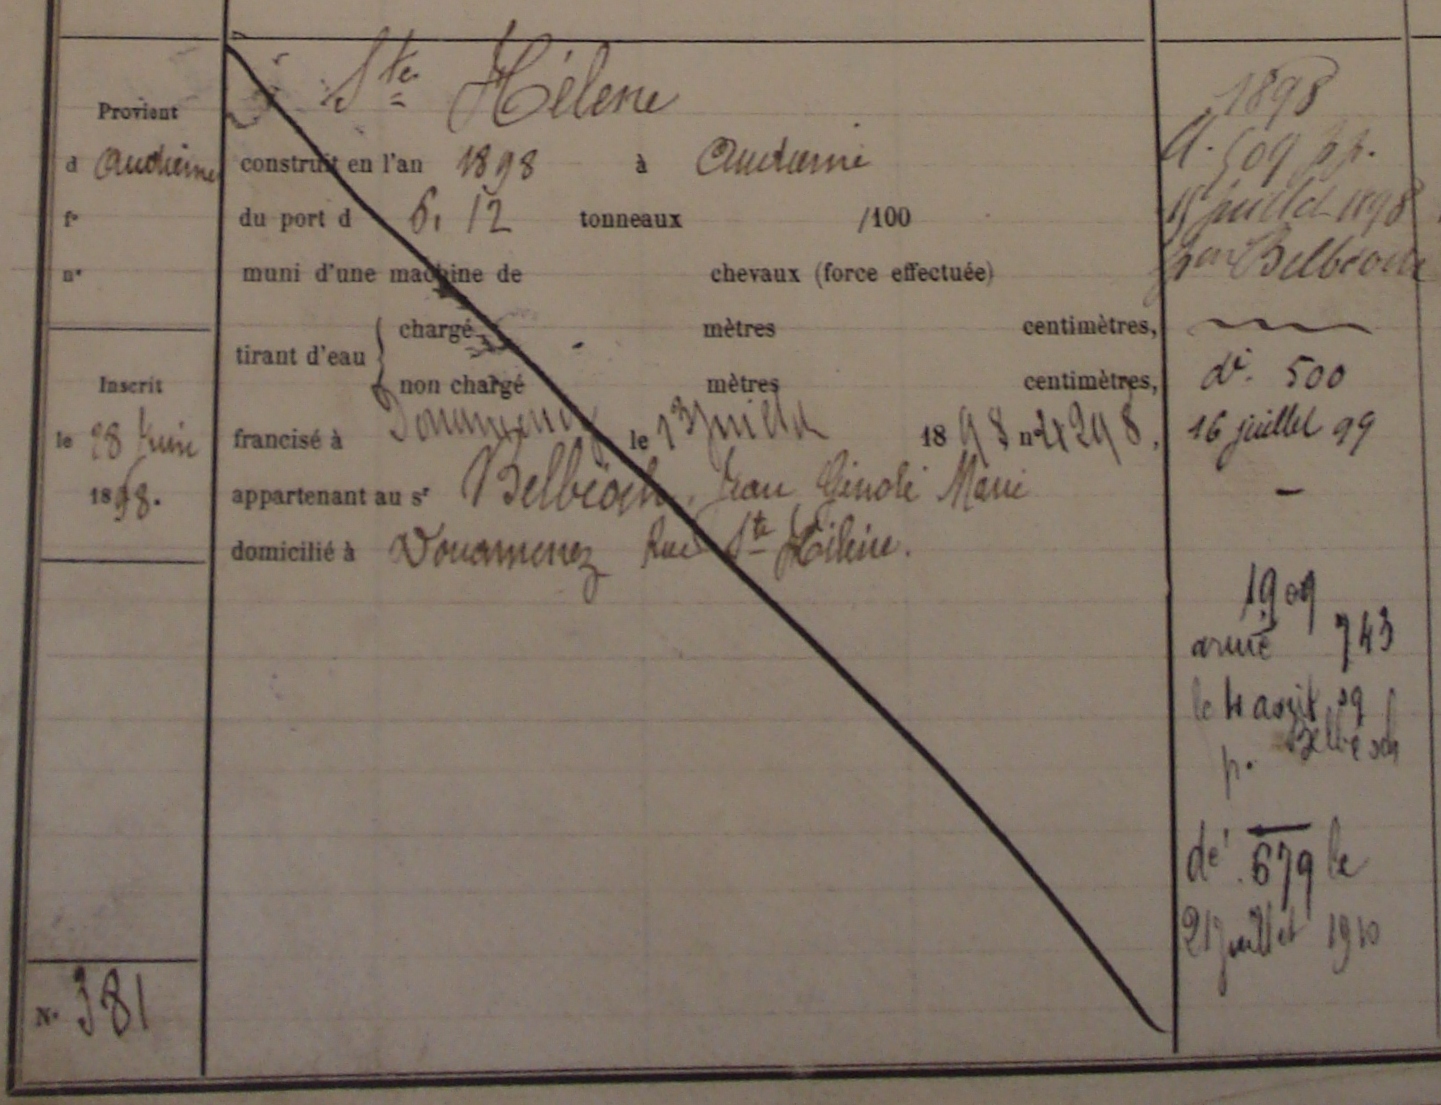 Ste Hélène
Provient
d Audierne construit en l'an 1898 à Audierne
fo du port d 6. 12 tonneaux /100
no muni d'une machine de chevaux (force effectuée)
tirant d'eau { chargé mètres centimètres,
non chargé mètres centimètres,
Inscrit
le 28 Juin francisé à Douarnenez le 13 Juillet 1898 n° 298,
1898. appartenant au sr Belbéoch, Jean Marie
domicilié à Douarnenez Rue Ste Hélène.
No 381
1898
A. 509
15 juillet 1898
Belbeoch
di. 500
16 juillet 99
1909
armé 743
le 4 août 09
p. Belbeoch
dé. 679 le
21 juillet 1910